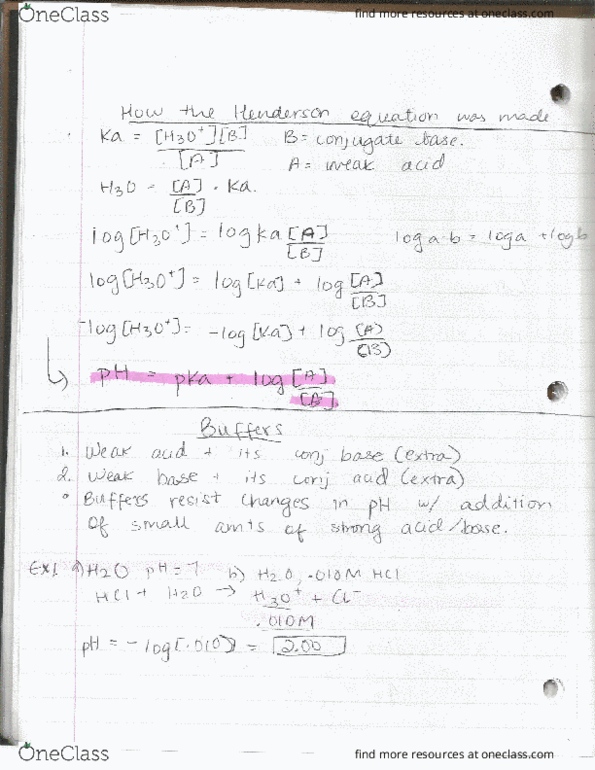 OneClass
find more resources at oneclass.com
How the Henderson equation was made
Ka = [H3O+][B] / [A]    B = conjugate base.
A = weak acid
H3O = [A] / [B] • Ka.
log[H3O+] = log ka [A] / [B]    log a·b = log a + log b
log[H3O+] = log[Ka] + log [A] / [B]
-log[H3O+] = -log[Ka] + log (A) / (B)
↳ pH = pKa + log [A] / [B]
Buffers
1. Weak acid + its conj base (extra)
2. Weak base + its conj acid (extra)
• Buffers resist changes in pH w/ addition
of small amts of strong acid/base.
EX1 a) H2O pH = 7    b) H2O, .010M HCl
HCl + H2O → H3O+ + Cl-
.010M
pH = -log[.010] = 2.00
OneClass
find more resources at oneclass.com